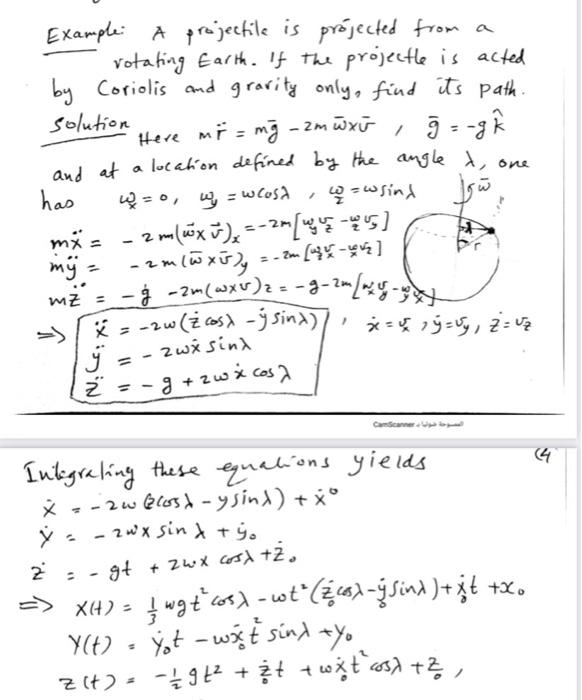 Example: A projectile is projected from a
rotating Earth. If the projectle is acted
by Coriolis and gravity only, find its path.
Solution Here mr̈ = mḡ - 2m ω̄×v̄ , ḡ = -g k̂
and at a location defined by the angle λ, one
has ωₓ = 0, ω_y = ω cosλ , ω_z = ω sinλ
ω̄
λ
r
mẍ = - 2m(ω̄×v̄)ₓ = -2m[ω_y v_z - ω_z v_y]
mÿ = - 2m(ω̄×v̄)_y = -2m[ω_z vₓ - ωₓ v_z]
mz̈ = -g - 2m(ω×v)z = -g-2m[ωₓ v_y - ω_y vₓ]
⇒ ẍ = -2ω(ż cosλ - ẏ sinλ) , ẋ = vₓ , ẏ = v_y , ż = v_z
ÿ = - 2ωẋ sinλ
z̈ = - g + 2ωẋ cosλ
CamScanner
(4
Integrating these equations yields
ẋ = -2ω(z cosλ - y sinλ) + ẋ°
ẏ = - 2ωx sinλ + ẏ₀
ż = - gt + 2ωx cosλ + ż₀
⇒ x(t) = 1/3 ωgt² cosλ - ωt² (ż₀ cosλ - ẏ₀ sinλ) + ẋ₀t + x₀
y(t) = ẏ₀t - ωẋ₀t² sinλ + y₀
z(t) = -1/2 gt² + ż₀t + ωẋ₀t² cosλ + z₀ ,